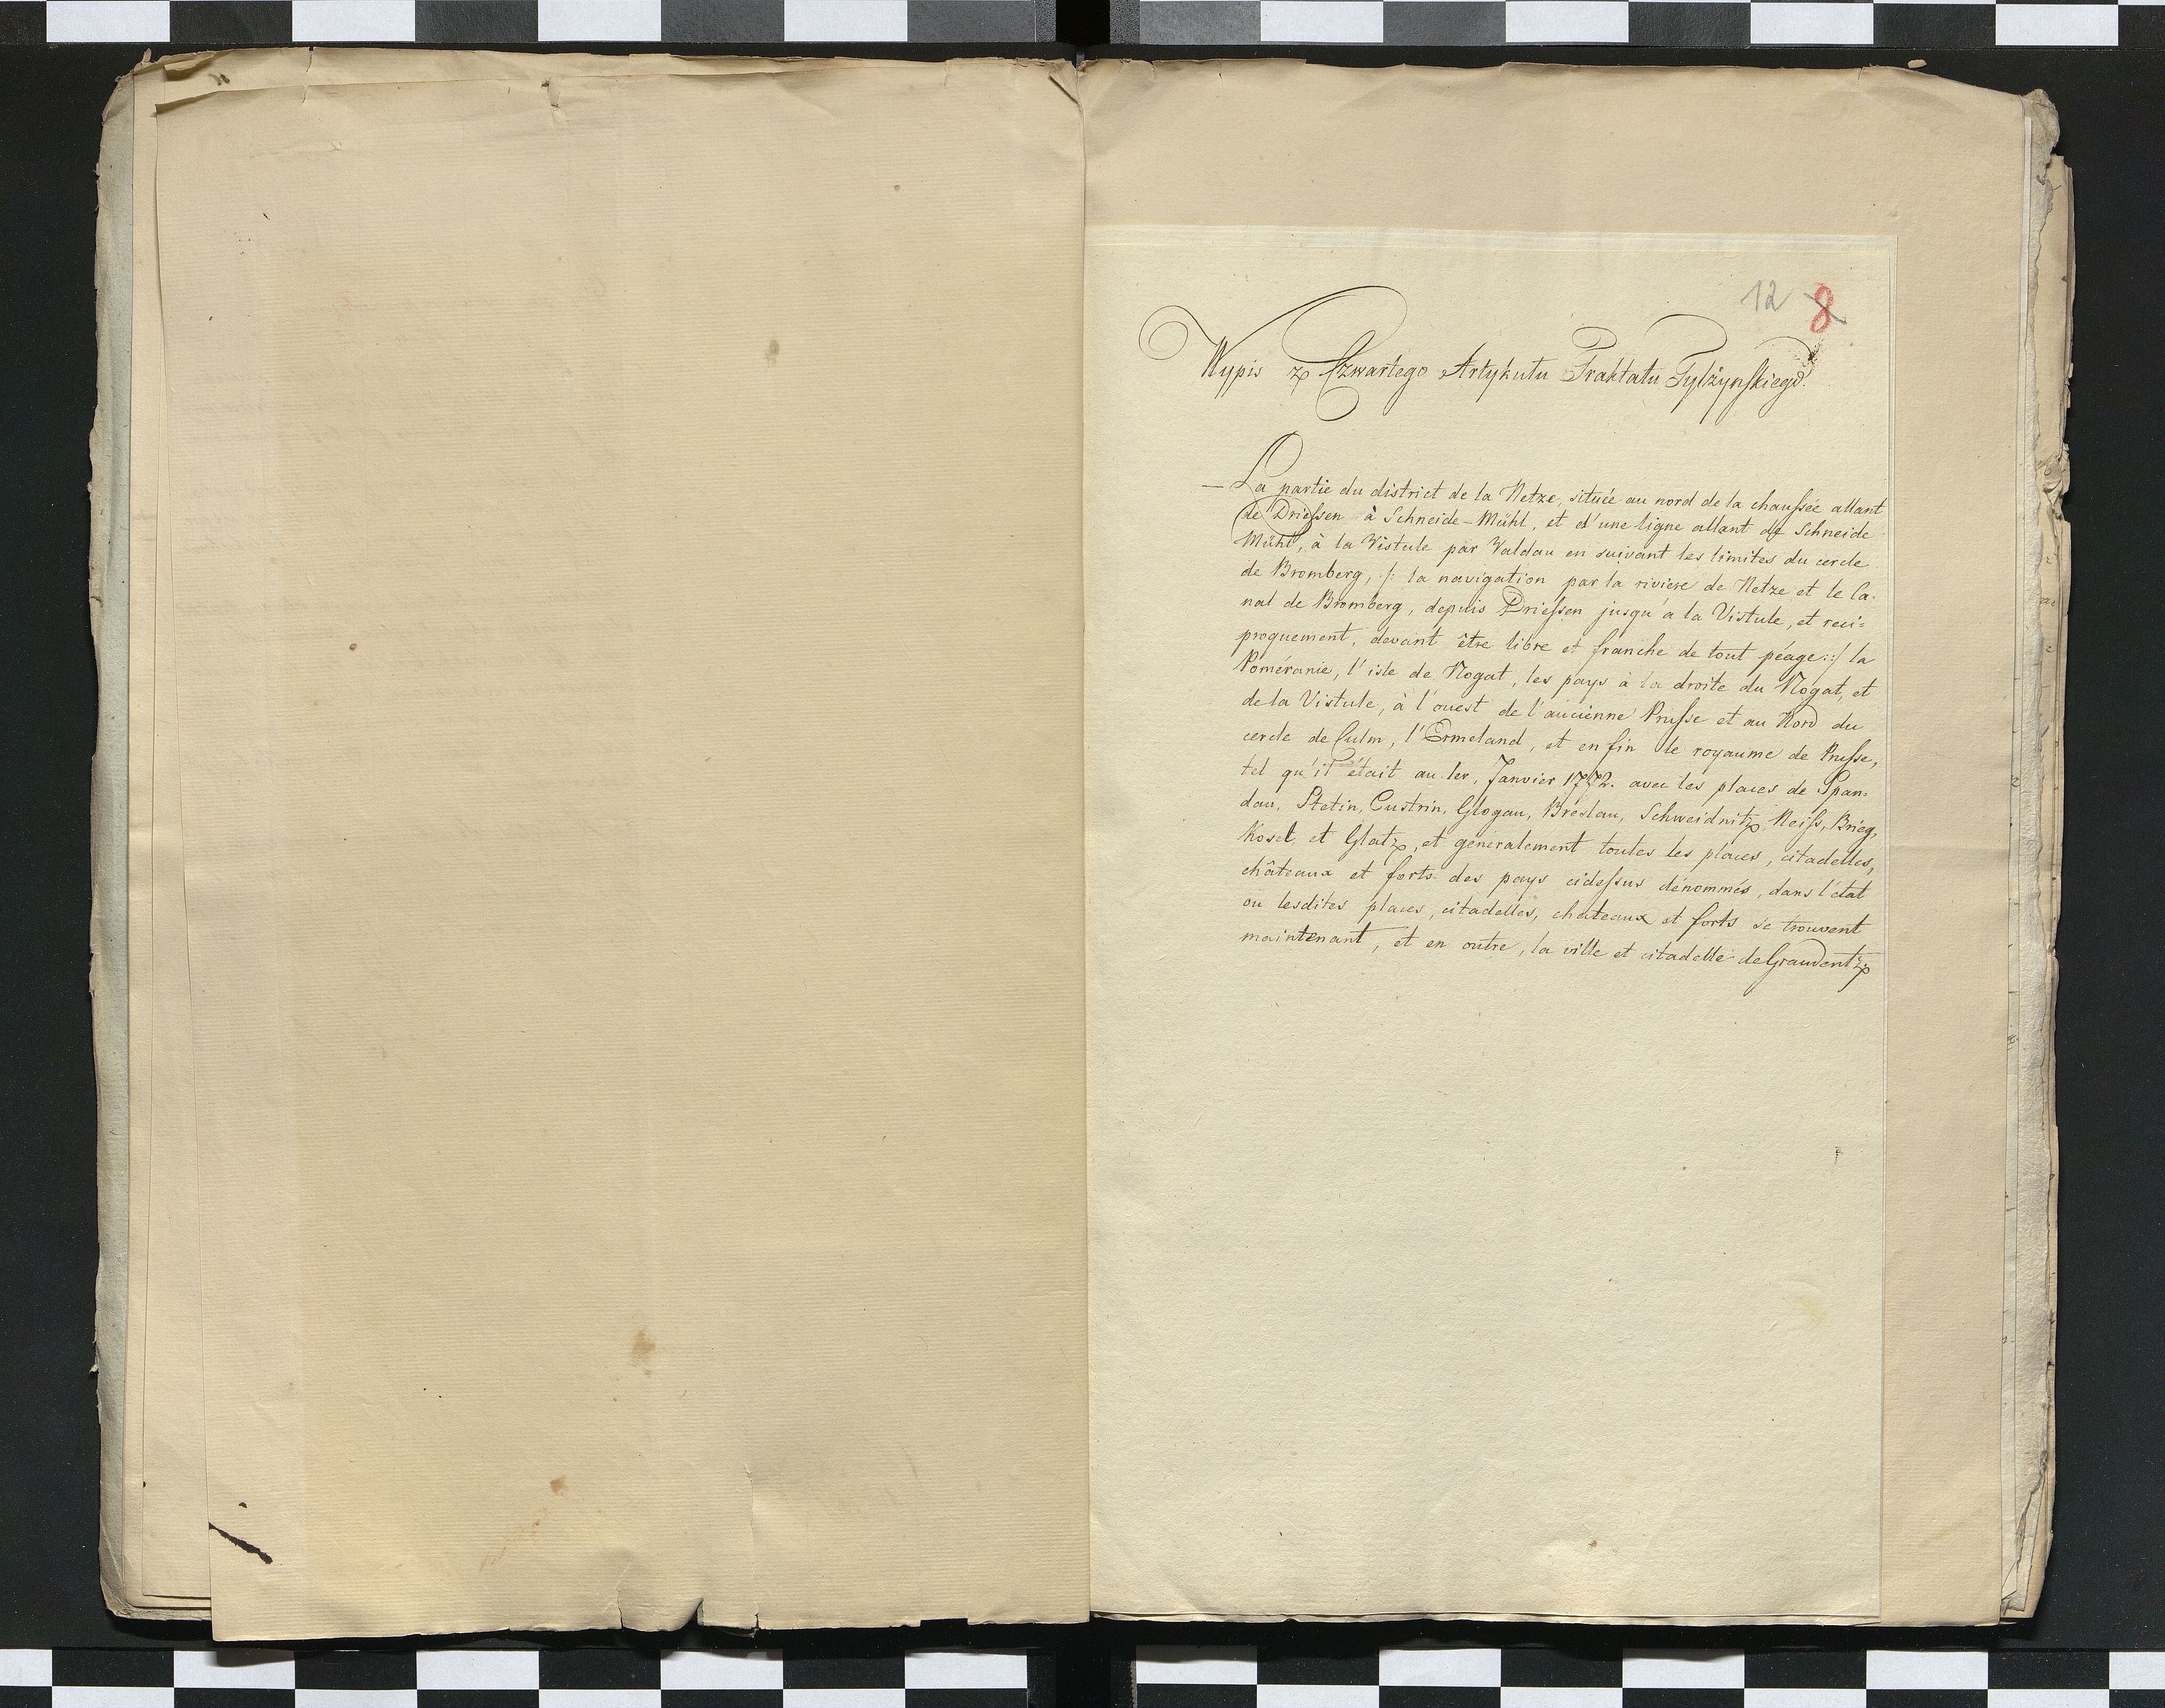 12 8
Wypis z Czwartego Artykułu Traktatu Tylżynskiego.
— La partie du district de la Netze, située au nord de la chaussée allant
de Driessen à Schneide-Mühl, et d'une ligne allant de Schneide
Mühl, à la Vistule par Valdau en suivant les limites du cercle
de Bromberg, /: la navigation par la riviere de Netze et le Ca-
nal de Bromberg, depuis Driessen jusqu'a la Vistule, et reci=
proquement, devant être libre et franche de tout péage :/ la
Poméranie, l'isle de Nogat, les pays à la droite du Nogat, et
de la Vistule, à l'ouest de l'ancienne Prusse et au Nord du
cercle de Culm, l'Ermeland, et enfin le royaume de Prusse,
tel qu'il était au 1er. Janvier 1772. avec les places de Span=
dau, Stetin, Custrin, Glogau, Breslau, Schweidnitz, Neiss, Brieg,
Kosel, et Glatz, et generalement toutes les places, citadelles,
châteaux et forts des pays cidessus dénommés, dans l'état
ou lesdites places, citadelles, chateaux et forts se trouvent
maintenant, et en outre, la ville et citadelle de Graudentz